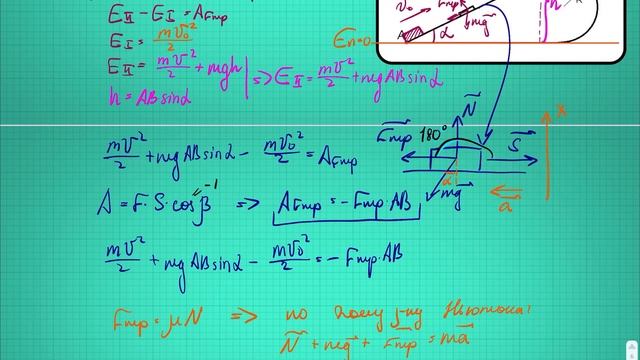 E_II − E_I = A_Fтр
E_I = mv₀²/2
E_II = mv²/2 + mgh
h = AB sinα
=> E_II = mv²/2 + mg AB sinα
v₀
Fтр
mg
A
α
h
Eп=0
mv²/2 + mg AB sinα − mv₀²/2 = A_Fтр
A = F · S · cosβ −1 => A_Fтр = −Fтр · AB
mv²/2 + mg AB sinα − mv₀²/2 = −Fтр · AB
Fтр 180° N S x
α mg a
Fтр = μN => по 2ому з-ну Ньютона:
N + mg + Fтр = ma